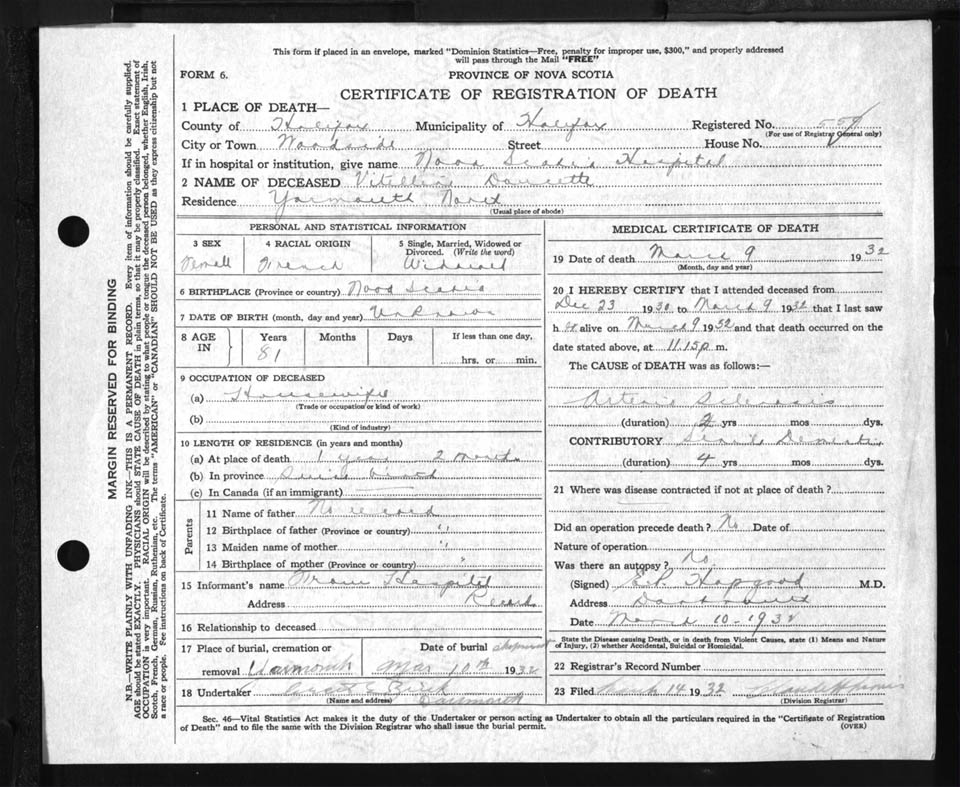 This form if placed in an envelope, marked "Dominion Statistics—Free, penalty for improper use, $300," and properly addressed
will pass through the Mail "FREE"
FORM 6. PROVINCE OF NOVA SCOTIA
CERTIFICATE OF REGISTRATION OF DEATH
1 PLACE OF DEATH—
County of Halifax Municipality of Halifax Registered No.
(For use of Registrar General only)
City or Town Woodside Street House No.
If in hospital or institution, give name Nova Scotia Hospital
2 NAME OF DECEASED Doucette
Residence Yarmouth North
(Usual place of abode)
PERSONAL AND STATISTICAL INFORMATION
3 SEX 4 RACIAL ORIGIN 5 Single, Married, Widowed or
Divorced. (Write the word)
Female French Widowed
6 BIRTHPLACE (Province or country) Nova Scotia
7 DATE OF BIRTH (month, day and year) Unknown
8 AGE Years Months Days If less than one day,
IN 81 hrs. or min.
9 OCCUPATION OF DECEASED
(a) Housewife
(Trade or occupation or kind of work)
(b)
(Kind of industry)
10 LENGTH OF RESIDENCE (in years and months)
(a) At place of death 1 year 2 months
(b) In province
(c) In Canada (if an immigrant)
Parents
11 Name of father No record
12 Birthplace of father (Province or country) "
13 Maiden name of mother "
14 Birthplace of mother (Province or country) "
15 Informant's name From Hospital
Address Records
16 Relationship to deceased
17 Place of burial, cremation or Date of burial
removal Yarmouth Mar 10th 1932
18 Undertaker
(Name and address)
MEDICAL CERTIFICATE OF DEATH
19 Date of death March 9 1932
(Month, day and year)
20 I HEREBY CERTIFY that I attended deceased from
Dec 23 1930 to March 9 1932 that I last saw
h er alive on March 9 1932 and that death occurred on the
date stated above, at 11.15 p m.
The CAUSE of DEATH was as follows:—
Arterio Sclerosis
(duration) yrs mos dys.
CONTRIBUTORY Senile Dementia
(duration) 4 yrs mos dys.
21 Where was disease contracted if not at place of death?
Did an operation precede death? No Date of
Nature of operation
Was there an autopsy? No.
(Signed) Hopgood M.D.
Address Dartmouth
Date March 10 - 1932
State the Disease causing Death, or in death from Violent Causes, state (1) Means and Nature
of Injury, (2) whether Accidental, Suicidal or Homicidal.
22 Registrar's Record Number
23 Filed March 14 1932
(Division Registrar)
Sec. 46—Vital Statistics Act makes it the duty of the Undertaker or person acting as Undertaker to obtain all the particulars required in the "Certificate of Registration
of Death" and to file the same with the Division Registrar who shall issue the burial permit.
(OVER)
MARGIN RESERVED FOR BINDING
N.B.—WRITE PLAINLY WITH UNFADING INK—THIS IS A PERMANENT RECORD. Every item of information should be carefully supplied.
AGE should be stated EXACTLY. PHYSICIANS should STATE CAUSE OF DEATH in plain terms, so that it may be properly classified. Exact statement of
OCCUPATION is very important. RACIAL ORIGIN will be described by stating to what people or tongue the deceased person belonged, whether English, Irish,
Scotch, French, German, Russian, Ruthenian, etc. The terms "AMERICAN" or "CANADIAN" SHOULD NOT BE USED as they express citizenship but not
a race or people. See instructions on back of Certificate.